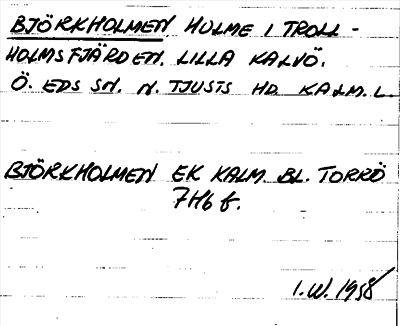 BJÖRKHOLMEN HULME I TROLL-
HOLMSFJÄRDEN. LILLA KALVÖ.
Ö. EDS SN. N. TJUSTS HD. KALM. L.
BJÖRKHOLMEN EK KALM. BL. TORRÖ
7H6 f.
I.W. 1958